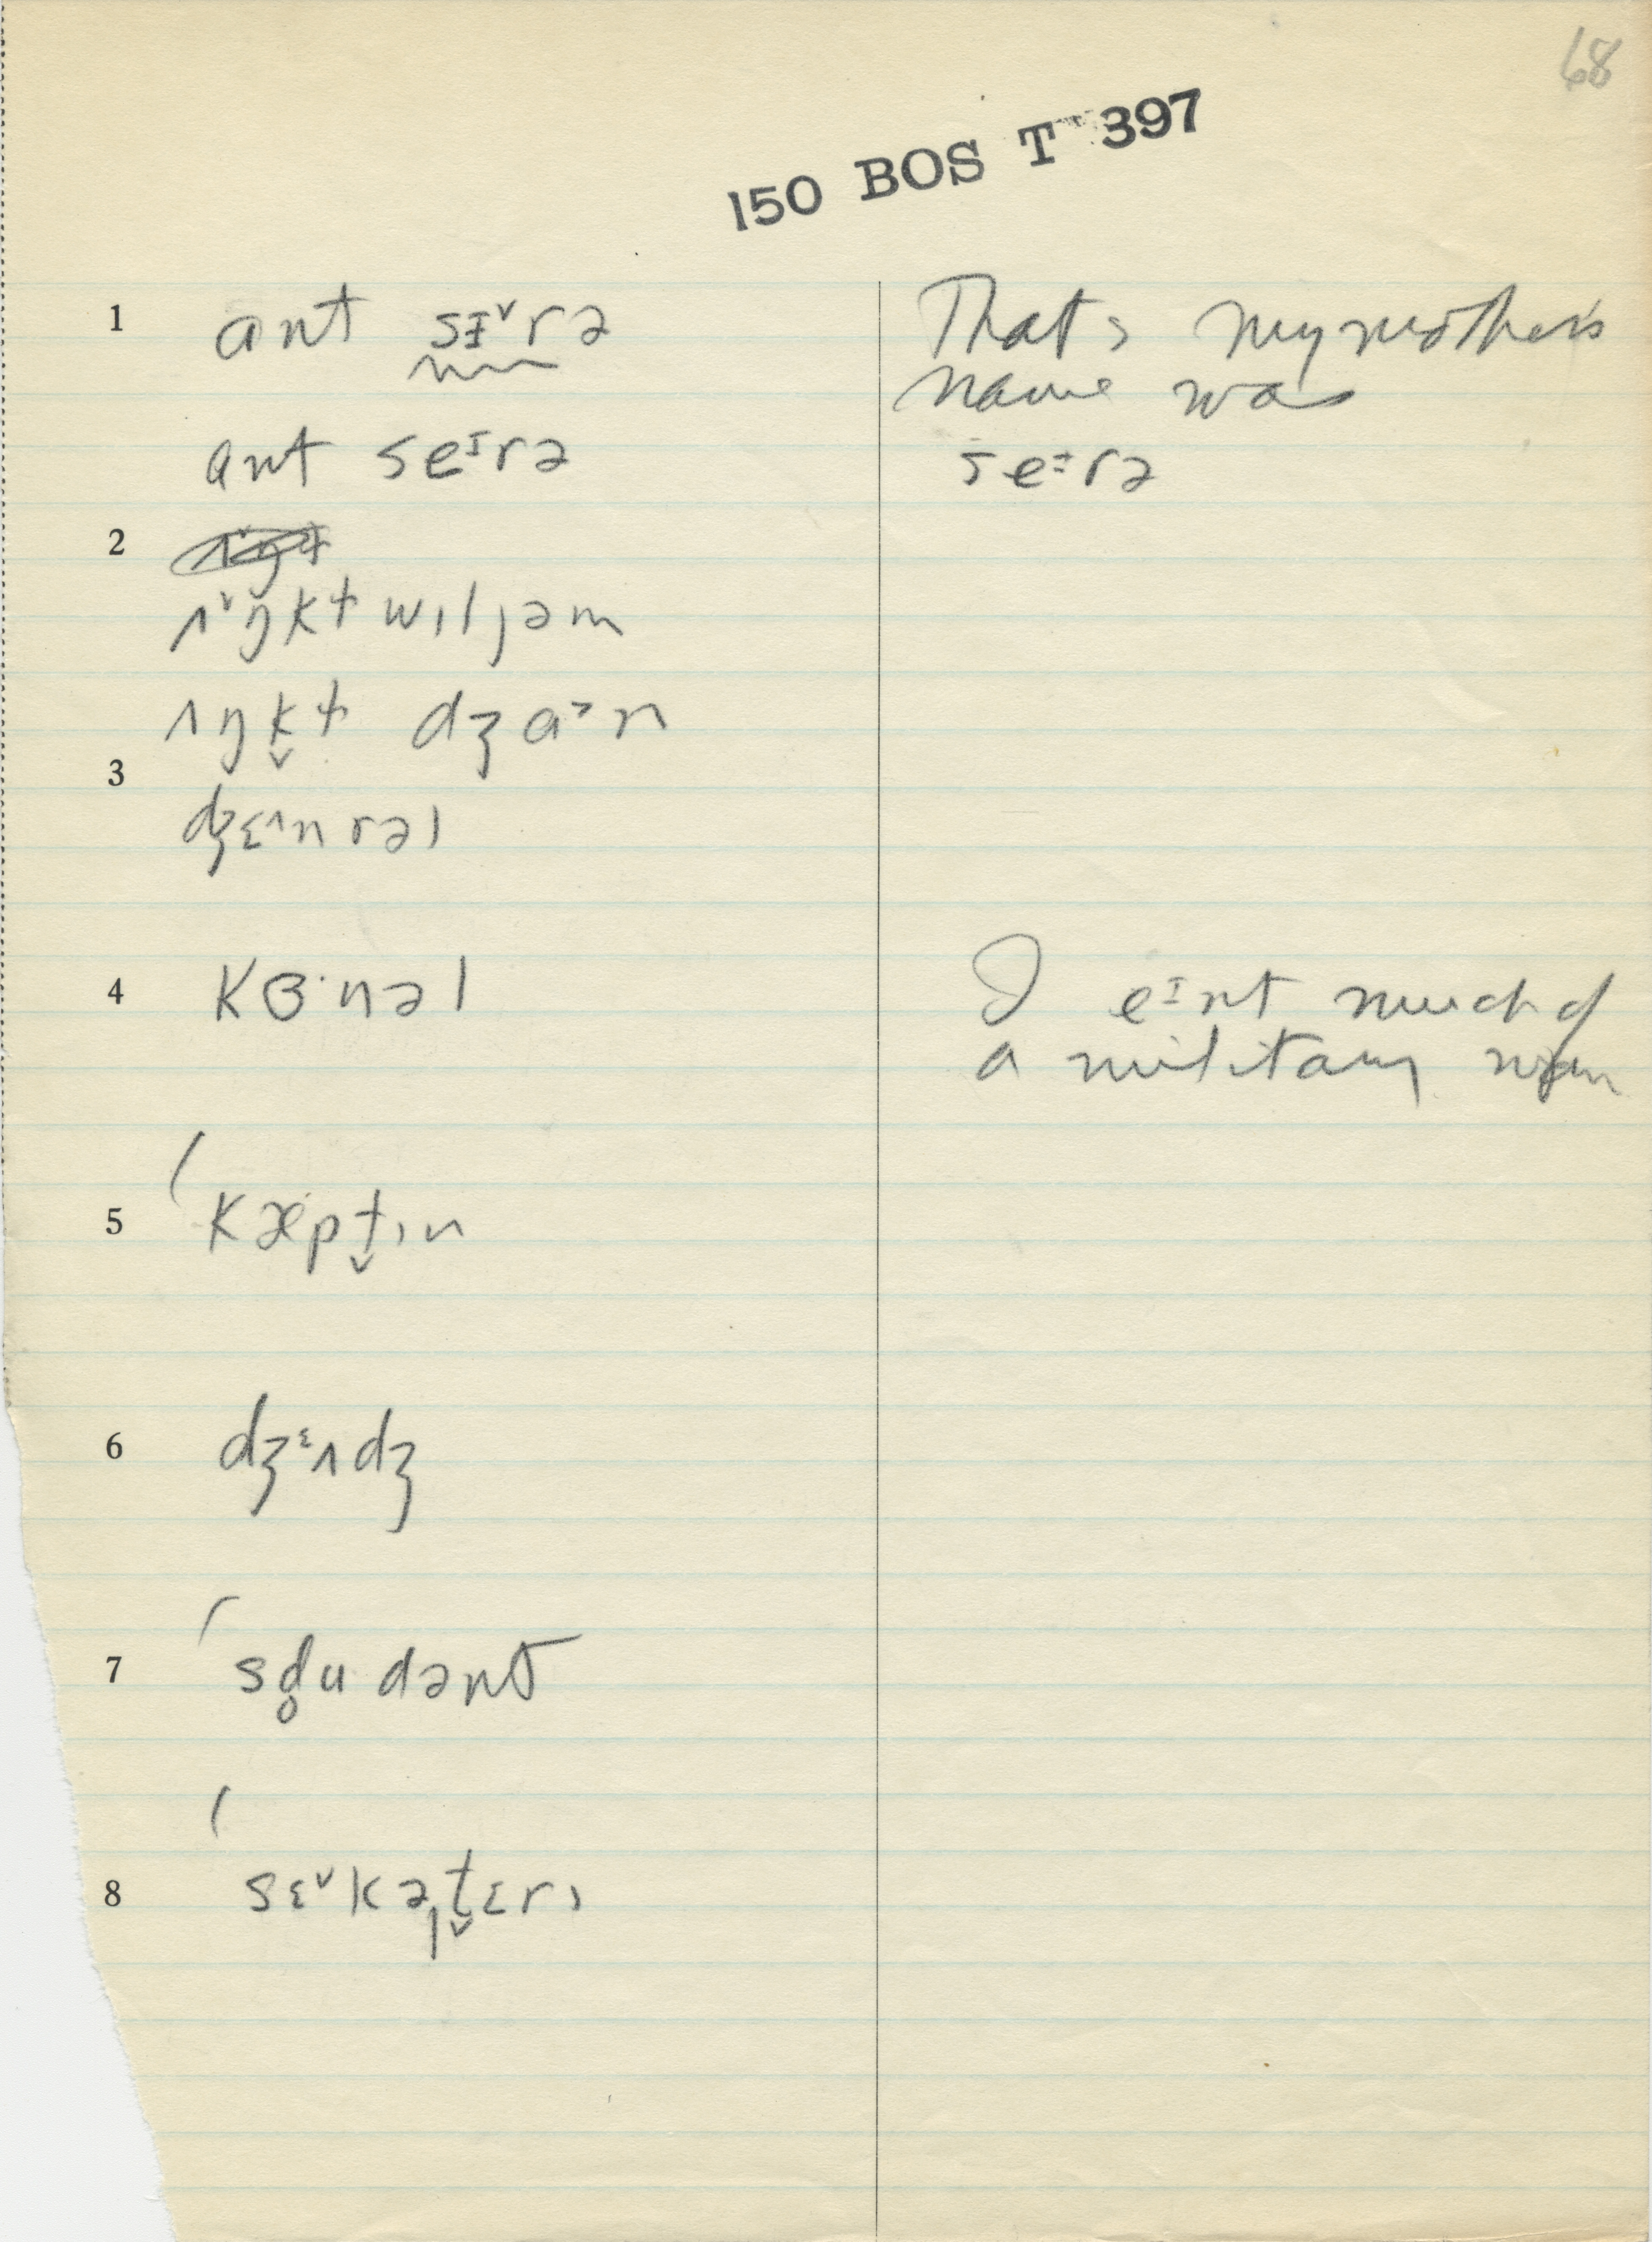 68
150 BOS T 397
1 ant sɪ˅rə
That's my mother's
name was
ant seᶦrə
seᶦrə
2
ʌ˅ŋkɫ wɪljəm
ʌŋk̬ɫ dʒɑ˃n
3
dʒɛ˄nrəl
4 kɜ·nəl
I eᶦnt much of
a military man
5 ˈkæpt̬ɪn
6 dʒᵋʌdʒ
7 ˈsd̥udənt
8 ˈsɛ˅kəˌt̬ɛrɪ